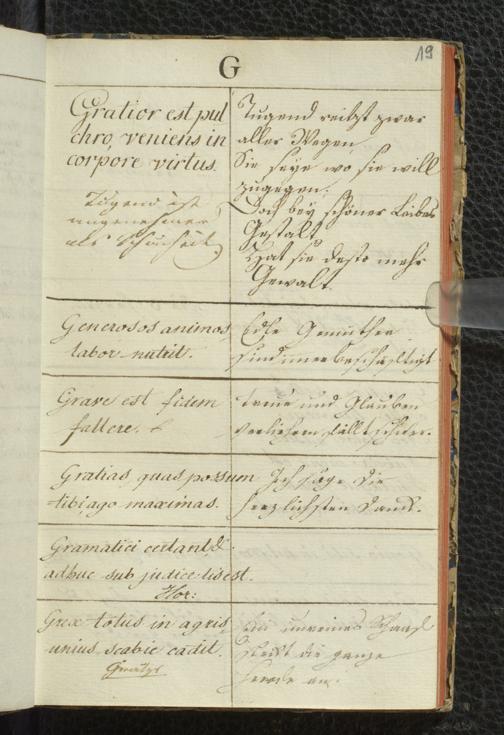 19
G
Gratior est pul
chro, veniens in
corpore virtus.
Tugend ist
angenehmer
als Schönheit
Tugend reitzt zwar
aller Wegen
Sie seye wo sie will
zugegen;
Doch bey schöner Leibes
Gestalt
Hat sie desto mehr
Gewalt.
Generosos animos
labor nutrit.
Edle Gemüther
sind immer beschäftigt
Grave est fidem
fallere.
Treue und Glauben
fällt schwer.
Gratias quas possum
tibi ago maximas.
Ich sage die
herzlichsten Dank.
Gramatici certant &
adhuc sub judice lis est.
Hor:
Grex totus in agris
unius scabie cadit.
Ein unreines Schaaf
steckt die ganze
Heerde an.